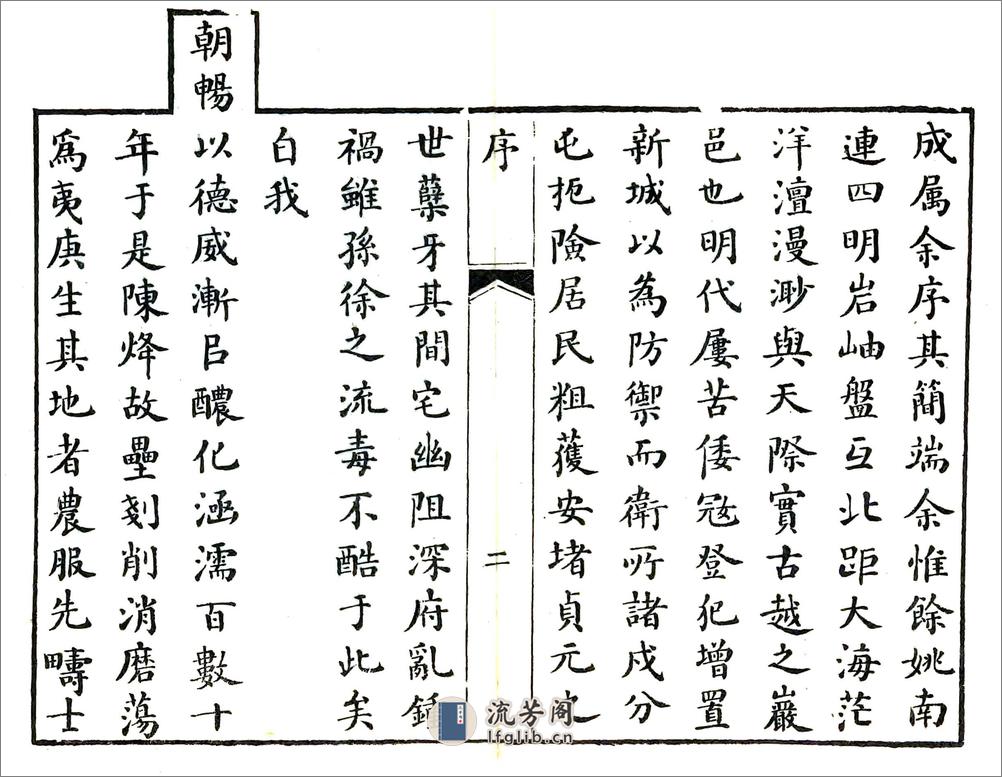 成属余序其簡端余惟餘姚南
連四明岩岫盤互北距大海茫
洋澶漫渺與天際實古越之巖
邑也明代屢苦倭寇登犯增置
新城以為防禦而衛所諸戍分
屯扼險居民粗獲安堵貞元之
序
二
世蘖牙其間宅幽阻深府亂鍾
禍雖孫徐之流毒不酷于此矣
白我
朝暘
以德威漸㠯醲化涵濡百數十
年于是陳烽故壘剗削消磨蕩
為夷庚生其地者農服先疇士
流芳阁
lfglib.cn